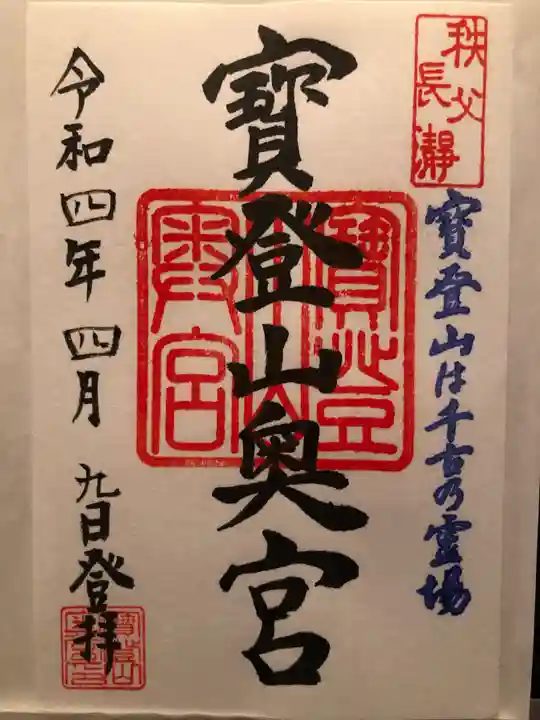 秩父
長瀞
寶登山は千古乃霊場
寶登山奥宮
寶登山
奥宮
令和四年 四月 九日登拝